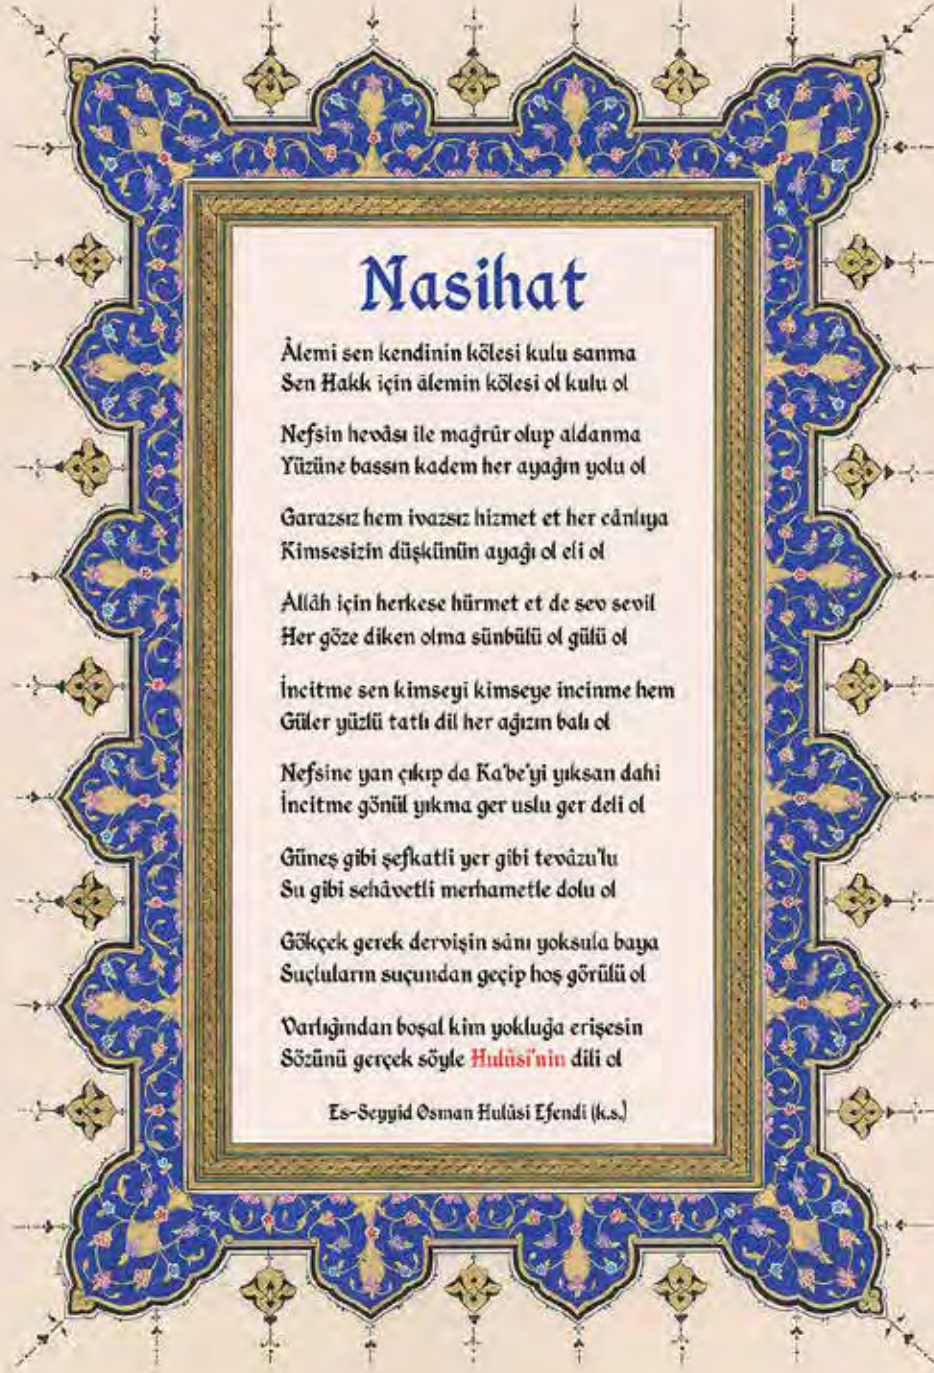 Nasihat
Âlemi sen kendinin kölesi kulu sanma
Sen Hakk için âlemin kölesi ol kulu ol
Nefsin hevâsı ile mağrûr olup aldanma
Yüzüne bassın kadem her ayağın yolu ol
Garazsız hem ivazsız hizmet et her cânlıya
Kimsesizin düşkünün ayağı ol eli ol
Allâh için herkese hürmet et de sev sevil
Her göze diken olma sünbülü ol gülü ol
İncitme sen kimseyi kimseye incinme hem
Güler yüzlü tatlı dil her ağızın balı ol
Nefsine yan çıkıp da Ka'be'yi yıksan dahi
İncitme gönül yıkma ger uslu ger deli ol
Güneş gibi şefkatli yer gibi tevâzu'lu
Su gibi sehâvetli merhametle dolu ol
Gökçek gerek dervişin sânı yoksula baya
Suçluların suçundan geçip hoş görülü ol
Varlığından boşal kim yokluğa erişesin
Sözünü gerçek söyle Hulûsî'nin dili ol
Es-Seyyid Osman Hulûsi Efendi (k.s.)